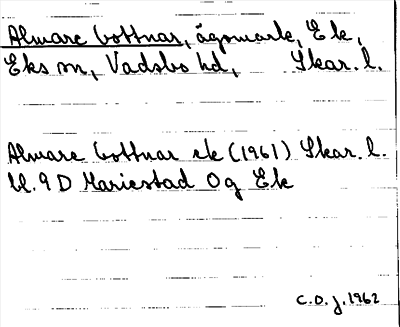 Almare bottnar, ägomark, Ek,
Eks sn, Vadsbo hd, Skar. l.
Almare bottnar ek (1961) Skar. l.
Bl. 9 D Mariestad Og Ek
C.O.J. 1962